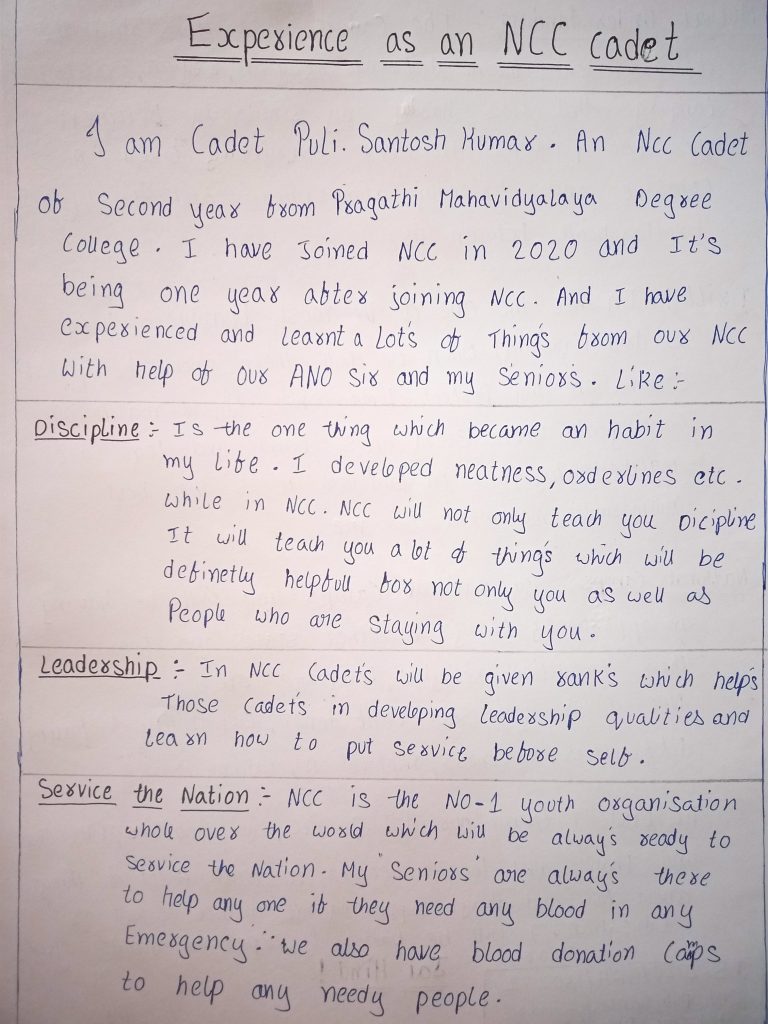 Experience as an NCC cadet
I am Cadet Puli. Santosh Kumar. An Ncc Cadet
of Second year from Pragathi Mahavidyalaya Degree
College. I have Joined NCC in 2020 and It's
being one year after joining NCC. And I have
experienced and learnt a Lot's of Thing's from our NCC
With help of our ANO Sir and my Seniors. Like :-
Discipline :- Is the one thing which became an habit in
my life. I developed neatness, orderlines etc.
while in NCC. NCC will not only teach you Dicipline
It will teach you a lot of thing's which will be
definetly helpfull for not only you as well as
People who are staying with you.
Leadership :- In NCC Cadet's will be given rank's which help's
Those Cadet's in developing leadership qualities and
learn how to put service before self.
Service the Nation :- NCC is the NO-1 youth organisation
whole over the world which will be alway's ready to
Service the Nation. My "Seniors" are alway's there
to help any one if they need any blood in any
Emergency ∴ we also have blood donation Camps
to help any needy people.